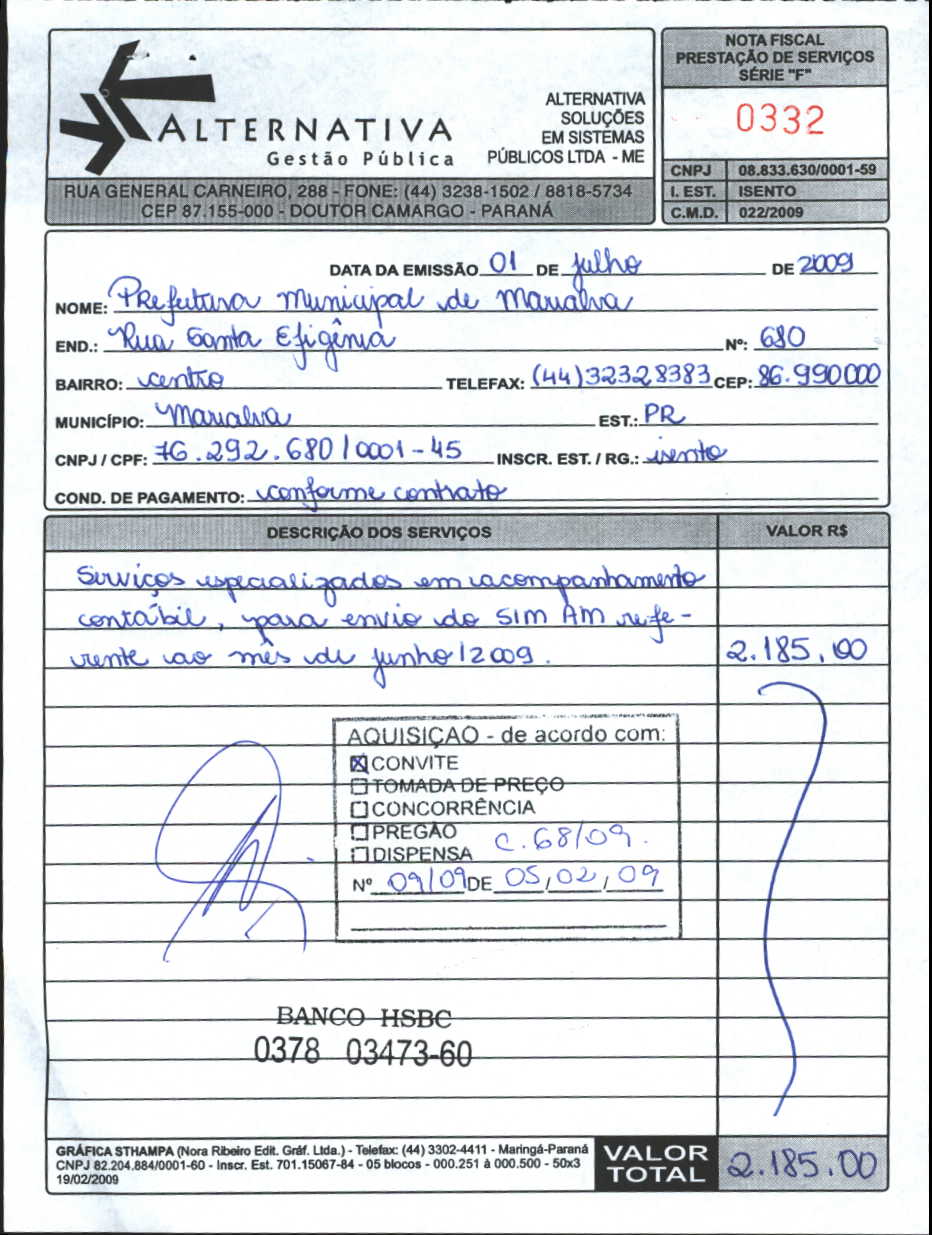 ALTERNATIVA
Gestão Pública
ALTERNATIVA
SOLUÇÕES
EM SISTEMAS
PÚBLICOS LTDA - ME
RUA GENERAL CARNEIRO, 288 - FONE: (44) 3238-1502 / 8818-5734
CEP 87.155-000 - DOUTOR CAMARGO - PARANÁ
NOTA FISCAL
PRESTAÇÃO DE SERVIÇOS
SÉRIE "F"
0332
CNPJ 08.833.630/0001-59
I. EST. ISENTO
C.M.D. 022/2009
DATA DA EMISSÃO 01 DE julho DE 2009
NOME: Prefeitura Municipal de Marialva
END.: Rua Santa Efigênia Nº: 680
BAIRRO: centro TELEFAX: (44)32328383 CEP: 86.990000
MUNICÍPIO: Marialva EST.: PR
CNPJ / CPF: 76.292.680/0001-45 INSCR. EST. / RG.: isento
COND. DE PAGAMENTO: conforme contrato
DESCRIÇÃO DOS SERVIÇOS VALOR R$
Serviços especializados em acompanhamento
contábil, para envio do SIM AM refe-
rente ao mês de junho/2009. 2.185,00
AQUISIÇAO - de acordo com:
CONVITE
TOMADA DE PREÇO
CONCORRÊNCIA
PREGÃO
DISPENSA C.68/09.
Nº 09/09 DE 05/02/09
BANCO HSBC
0378 03473-60
GRÁFICA STHAMPA (Nora Ribeiro Edit. Gráf. Ltda.) - Telefax: (44) 3302-4411 - Maringá-Paraná
CNPJ 82.204.884/0001-60 - Inscr. Est. 701.15067-84 - 05 blocos - 000.251 à 000.500 - 50x3
19/02/2009
VALOR
TOTAL 2.185.00